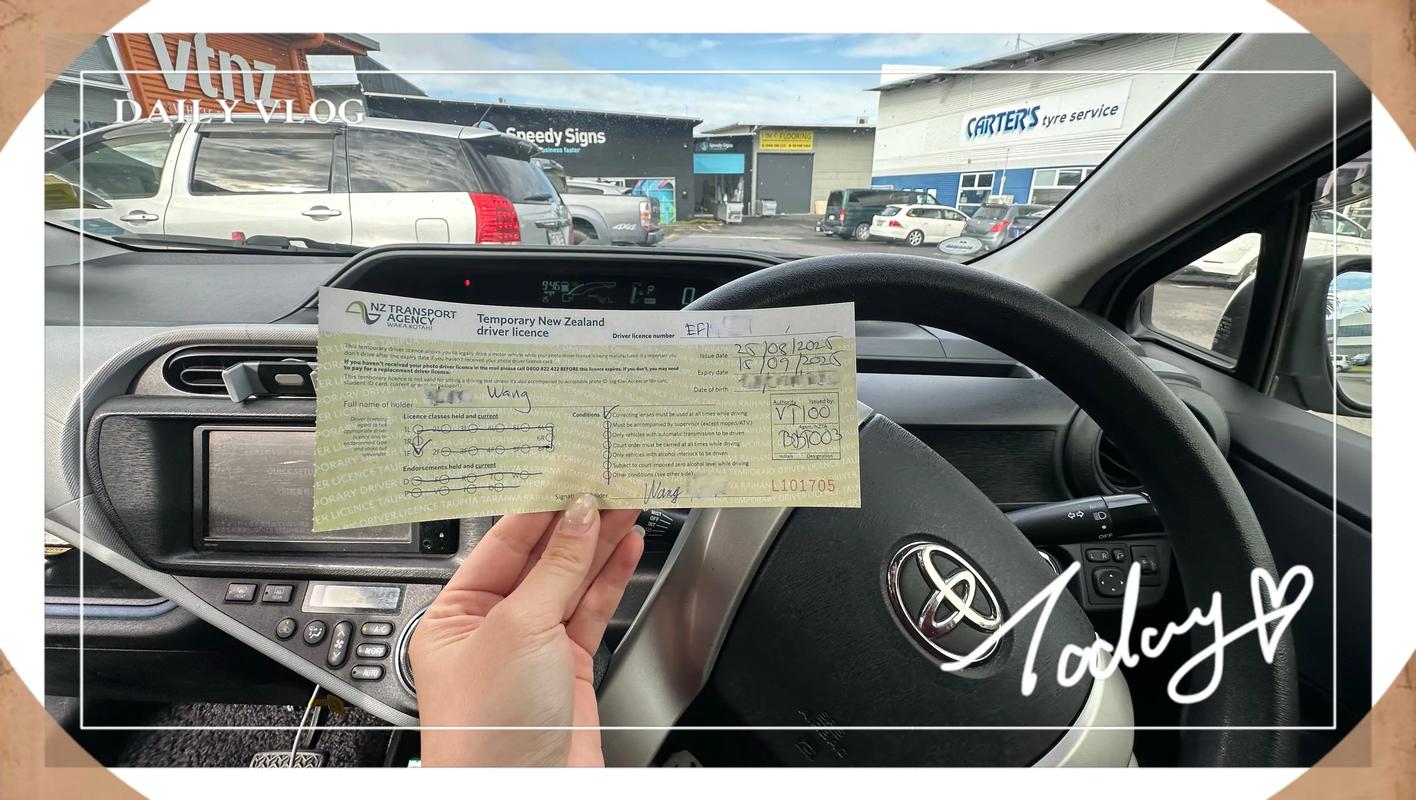 vtnz
DAILY VLOG
Speedy Signs
business faster
Speedy Signs
FLOORING
CARTER'S tyre service
946
P
0
NZ TRANSPORT
AGENCY
WAKA KOTAHI
Temporary New Zealand
driver licence
Driver licence number EF
This temporary driver licence allows you to legally drive a motor vehicle while your photo driver licence is being manufactured. It's important you
don't drive after the expiry date if you haven't received your photo driver licence card.
If you haven't received your photo driver licence in the mail please call 0800 822 422 BEFORE this licence expires. If you don't, you may need
to pay for a replacement driver licence.
This temporary licence is not valid for sitting a driving test unless it's also accompanied by acceptable photo ID
student ID card, current or
Issue date 25/08/2025
Expiry date 15/09/2025
Date of birth
Full name of holder Wang
Licence classes held and current
6R
Endorsements held and current
D
Conditions
Correcting lenses must be used at all times while driving
Must be accompanied by supervisor (except moped/ATV)
Only vehicles with automatic transmission to be driven
Court order must be carried at all times while driving
Only vehicles with alcohol interlock to be driven
Subject to court imposed zero alcohol level while driving
Other conditions (see other side)
Authority Issued by
VT100
Agent/NZTA
Initials Designation
Signature holder Wang
L101705
MIST
OFF
INT
A/C
OFF
AUTO
OFF
L R
Today